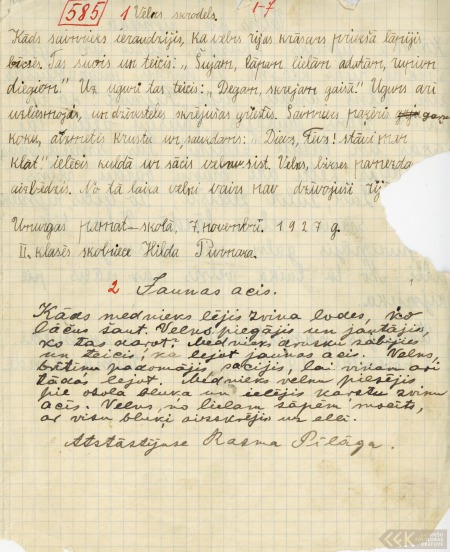 585 1 Velns skrodels. 1-7
Kāds saimnieks ieraudzījis, ka velns rijas krāsns priekšā lāpījis
bikses. Tas šuvis un teicis: „Šujam, lāpam lielām adatām,
diegiem." Uz uguni tas teicis: „Degam, skrejam gaisā." Uguns arī
uzliesmojās, un dzirksteles skrējušas griestos. Saimnieks paķēris
koku, apmetis krustu un saukdams: „Dievs, Tēvs! stāvi man
klāt" ielēcis kuldā un sācis velnu sist. Velns, bikses pamezdams
aizbēdzis. No tā laika velni vairs nav dzīvojuši
Umurgas pamat-skolā, 7. novembrī. 1927 g.
II. klases skolniece Hilda Pivovara.
2 Jaunas acis.
Kāds mednieks lējis zvina lodes, ko
lāčus šaut. Velns piegājis un jautājis,
ko tas darot. Mednieks drusku sabijies
un teicis, ka lejot jaunas acis. Velns,
brītiņu padomājis, sacījis, lai viņam arī
tādas lejot. Mednieks velnu piesējis
pie ozola bluķa un ielējis karstu zvinu
acīs. Velns, no lielām sāpēm mocīts,
ar visu bluķi aizskrējis uz elli.
Atstāstījuse Rasma Pilāga.